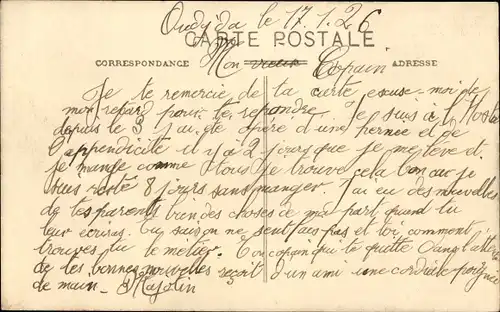 Oudjda le 17.1.26
CARTE POSTALE
CORRESPONDANCE ADRESSE
Mon vieux Copain
Je te remercie de ta carte excuse moi de
mon retard pour te repondre. Je suis à l'Hosto
depuis le 3 j'ai été opéré d'une hernie et de
l'appendicite il y à 2 jours que je me lève et
je mange comme tous je trouve cela bon car je
suis resté 8 jours sans manger. J'ai eu des nouvelles
de tes parents bien des choses de ma part quand tu
leur écriras. ne sent pas et toi comment
trouves tu le métier. Ton copain qui te quitte dans l'attente
de tes bonnes nouvelles reçoit d'un ami une cordiale poignée
de main - Majolin